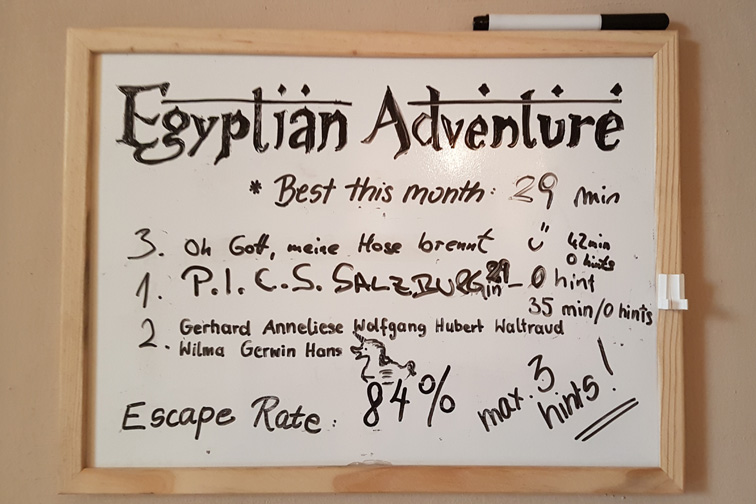 Egyptian Adventure
* Best this month: 29 min
3. Oh Gott, meine Hose brennt 42min
0 hints
1. P.I.C.S. SALZBURG in 29 - 0 hint
35 min/0 hints
2. Gerhard Anneliese Wolfgang Hubert Waltraud
Wilma Gerwin Hans
Escape Rate: 84%
max. 3
hints!